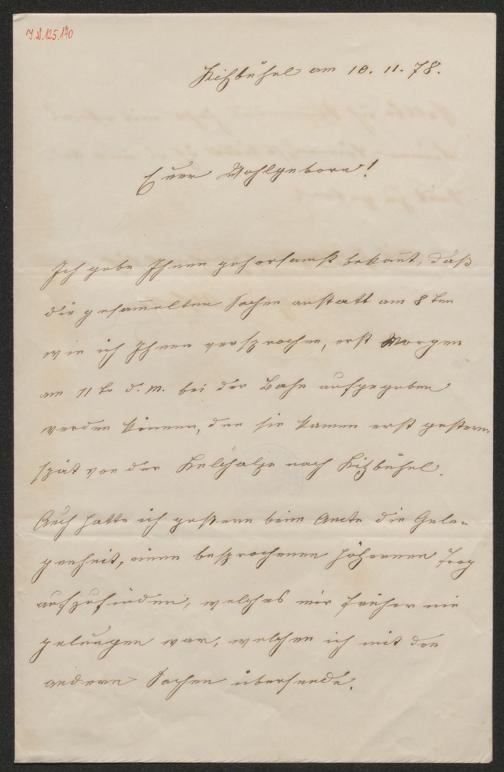 Kitzbühel am 10. 11. 78.
Euer Wohlgeboren!
Ich gebe Ihnen gehorsamst bekannt, daß
die gesammelten Sachen anstatt am 8 ten
wie ich Ihnen versprochen, erst Morgen
am 11 t. d. M. bei der Bahn aufgegeben
werden können, den sie kamen erst gestern
spät von der Kelchalpe nach Kitzbühel.
Auch hatte ich gestern beim Amte die Gele-
genheit, einen besprochenen hözernen Trog
aufzufinden, welches mir früher nie
gelungen war, welchen ich mit den
andern Sachen übersende.